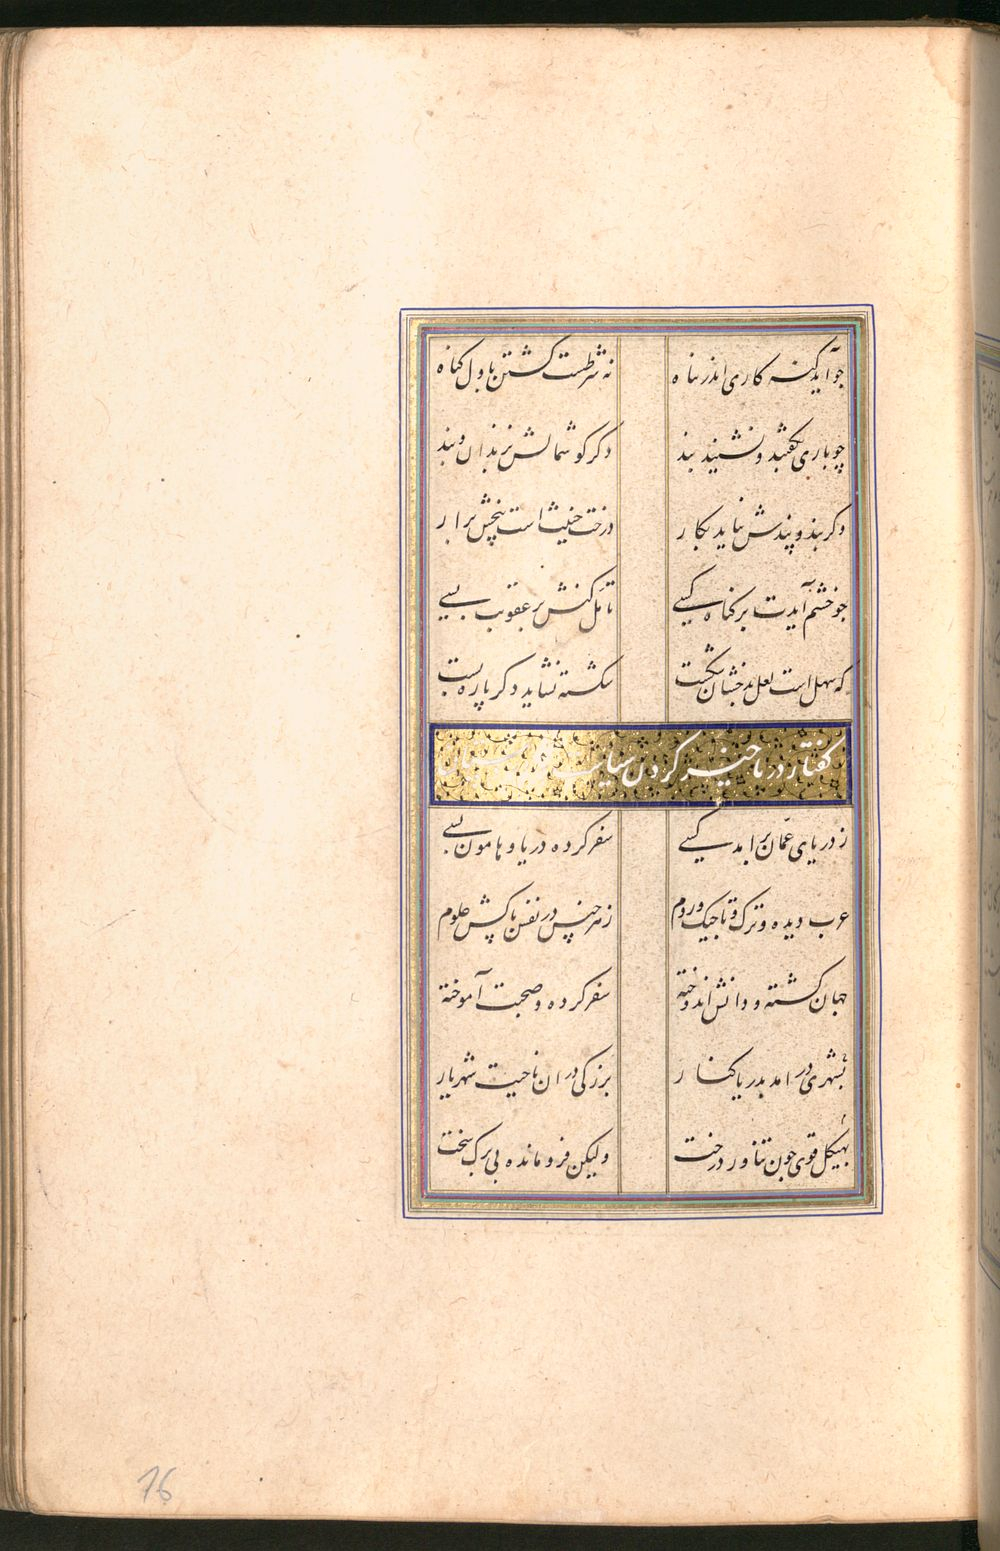 جو آید گنه کاری اندر پناه نه شرطست کشتن باول کناه
چو باری بکفتند و نشنید پند دکر کو شمالش بزندان و بند
وکر بند و پندش نیاید بکار درخت خبیث است بیخش برار
جو خشم آیدت بر کناه کسی تامل کنش بر عقوبت بسی
که سهل است لعل بدخشان شکست شکسته نشاید دکر باره بست
کفتار در تاخیر کردن سیاست
ز دریای عمان برامد کسی سفر کرده دریا و هامون بسی
عرب دیده و ترک و تاجیک و روم ز هر جنس در نفس پاکش علوم
جهان کشته و دانش اندوخته سفر کرده و صحبت آموخته
بشهری درامد بدریا کنار بزرکی دران ناحیت شهریار
بهیکل قوی جون تناور درخت ولیکن فرومانده بی برک سخت
76